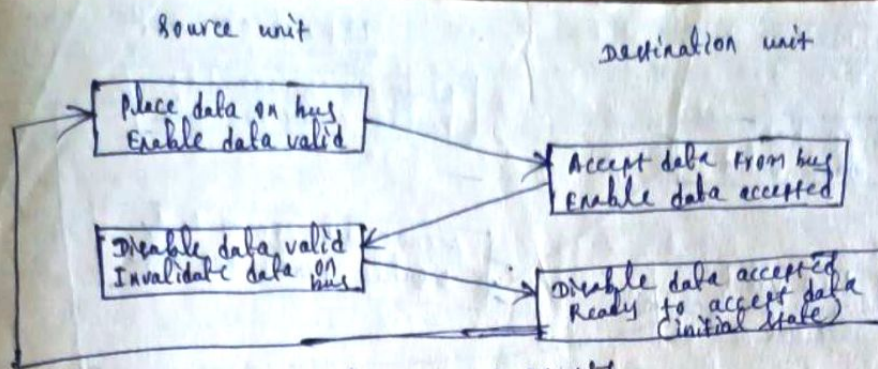 Source unit
Destination unit
Place data on bus
Enable data valid
Accept data From bus
Enable data accepted
Disable data valid
Invalidate data on
bus
Disable data accepted
Ready to accept data
(initial state)